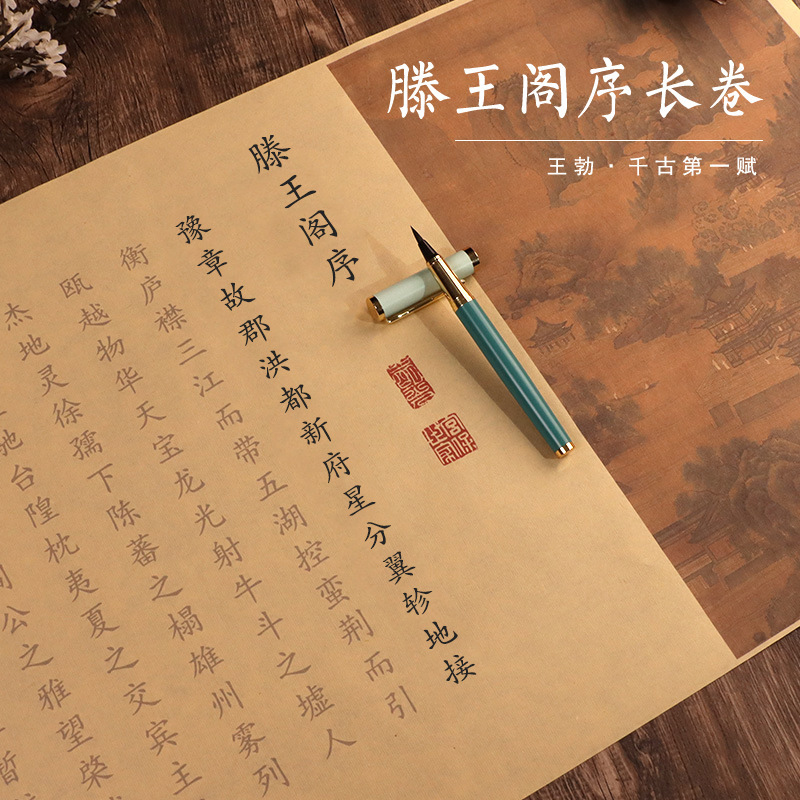 滕王阁序长卷
王勃·千古第一赋
滕王阁序
豫章故郡洪都新府星分翼轸地接
衡庐襟三江而带五湖控蛮荆而引
瓯越物华天宝龙光射牛斗之墟人
杰地灵徐孺下陈蕃之榻雄州雾列
驰台隍枕夷夏之交宾主
公之雅望棨
暂